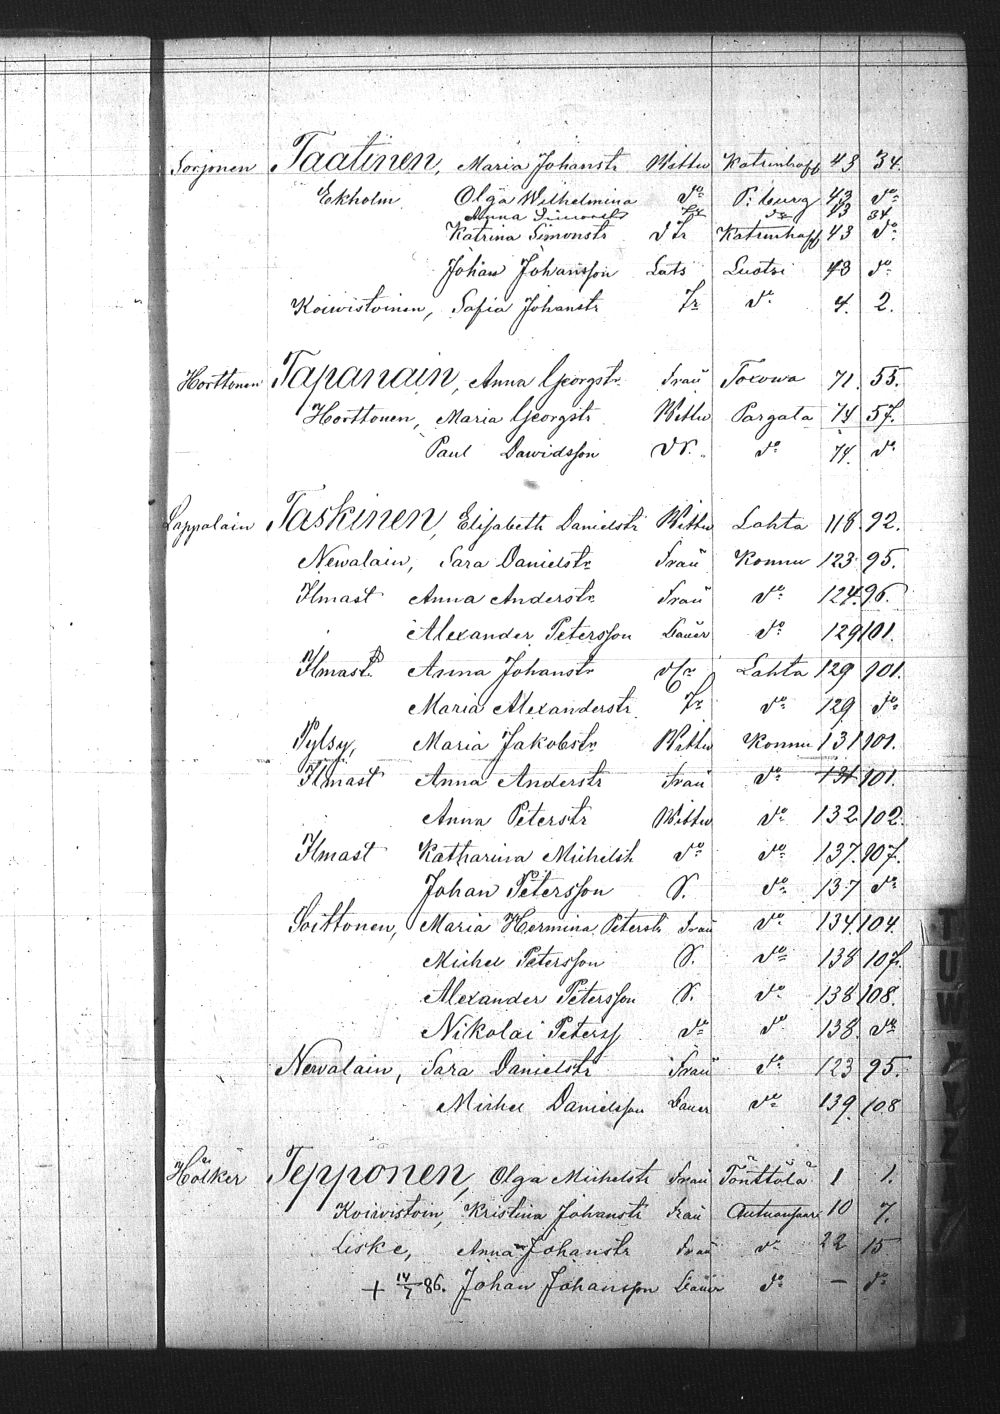 Sorjonen Taatinen, Maria Johanstr Wittw Katrinhoff 43 34.
Ekholm Olga Wilhelmina do P:burg 43 do
Anna Simonstr Fr do 43 34
Katrina Simonstr dTr Katrinhoff 43 do
Johan Johansson Lats Luotsi 43 do
Koiwistoinen, Sofia Johanstr Fr do 4. 2.
Horttonen Tapanain, Anna Georgstr Frau Toxowa 71. 55.
Horttonen, Maria Georgstr Wittw Pargala 74 57.
Paul Dawidsson dS. do 74. do
Lappalain Taskinen, Elisabeth Danielstr Wittw Lahta 118. 92.
Newalain, Sara Danielstr Frau Konnu 123 95.
Ilmast Anna Anderstr Frau do 124. 96.
Alexander Petersson Bauer do 129 101.
Ilmast Anna Johanstr Lahta 129 101.
Maria Alexanderstr Fr do 129 do
Pylsy, Maria Jakobstr Wittw Konnu 131 101.
Ilmast Anna Anderstr Frau do 131 101.
Anna Peterstr Wittw do 132 102.
Ilmast Katharina Michelstr do do 137. 107.
Johan Petersson S. do 137 do
Soittonen, Maria Hermina Peterstr Frau do 134. 104.
Michel Petersson S. do 138 107.
Alexander Petersson S. do 138 108.
Nikolai Peterss do do 138. do
Newalain, Sara Danielstr Frau do 123 95.
Michel Danielsson Bauer do 139. 108
Hölkér Tepponen, Olga Michelstr Frau Tönttölä 1 1.
Koiwistoin, Kristina Johanstr Frau Autuansaari 10 7.
Liske, Anna Johanstr Frau do 22 15
+ 14/7 86. Johan Johansson Bauer do — do
T
U
W
Z